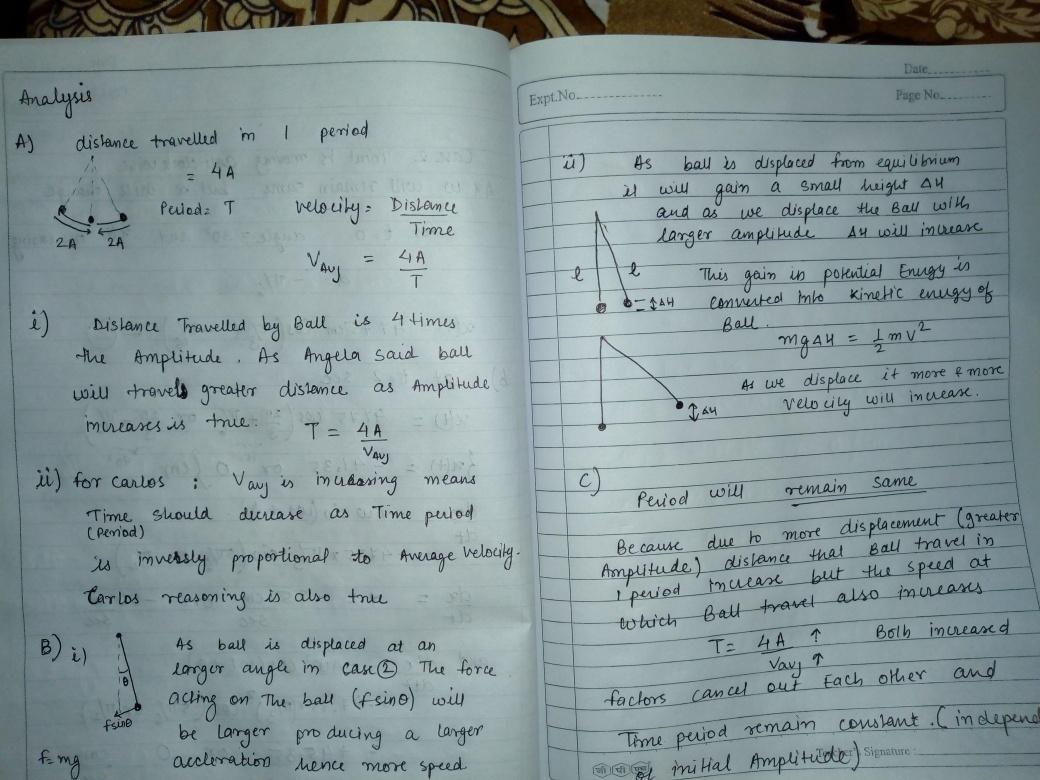 Analysis
A) distance travelled in 1 period
= 4A
Period = T
2A 2A
velocity = Distance / Time
VAvj = 4A / T
i) Distance Travelled by Ball is 4 times
the Amplitude. As Angela said ball
will travels greater distance as Amplitude
increases is true. T = 4A / VAvj
ii) for carlos : Vavj is increasing means
Time should decrease as Time period
(Period)
is inversly proportional to Average velocity.
Carlos reasoning is also true
B) i) As ball is displaced at an
larger angle in case ② The force
acting on The ball (fsinθ) will
be larger producing a larger
accleration hence more speed
θ
fsinθ
f=mg
Date
Expt.No. Page No.
ii) As ball is displaced from equilibrium
it will gain a small height ΔH
and as we displace the Ball with
larger amplitude ΔH will increase
l l ΔH
This gain in potential Enrgy is
converted into kinetic enrgy of
Ball.
mgΔH = 1/2 mv²
As we displace it more & more
velocity will increase.
ΔH
C) Period will remain same
Because due to more displacement (greater
Amplitude) distance that Ball travel in
1 period increase but the speed at
which Ball travel also increases
T = 4A ↑ / Vavj ↑ Both increased
factors cancel out Each other and
Time period remain constant. (independ
of initial Amplitude)
Signature :